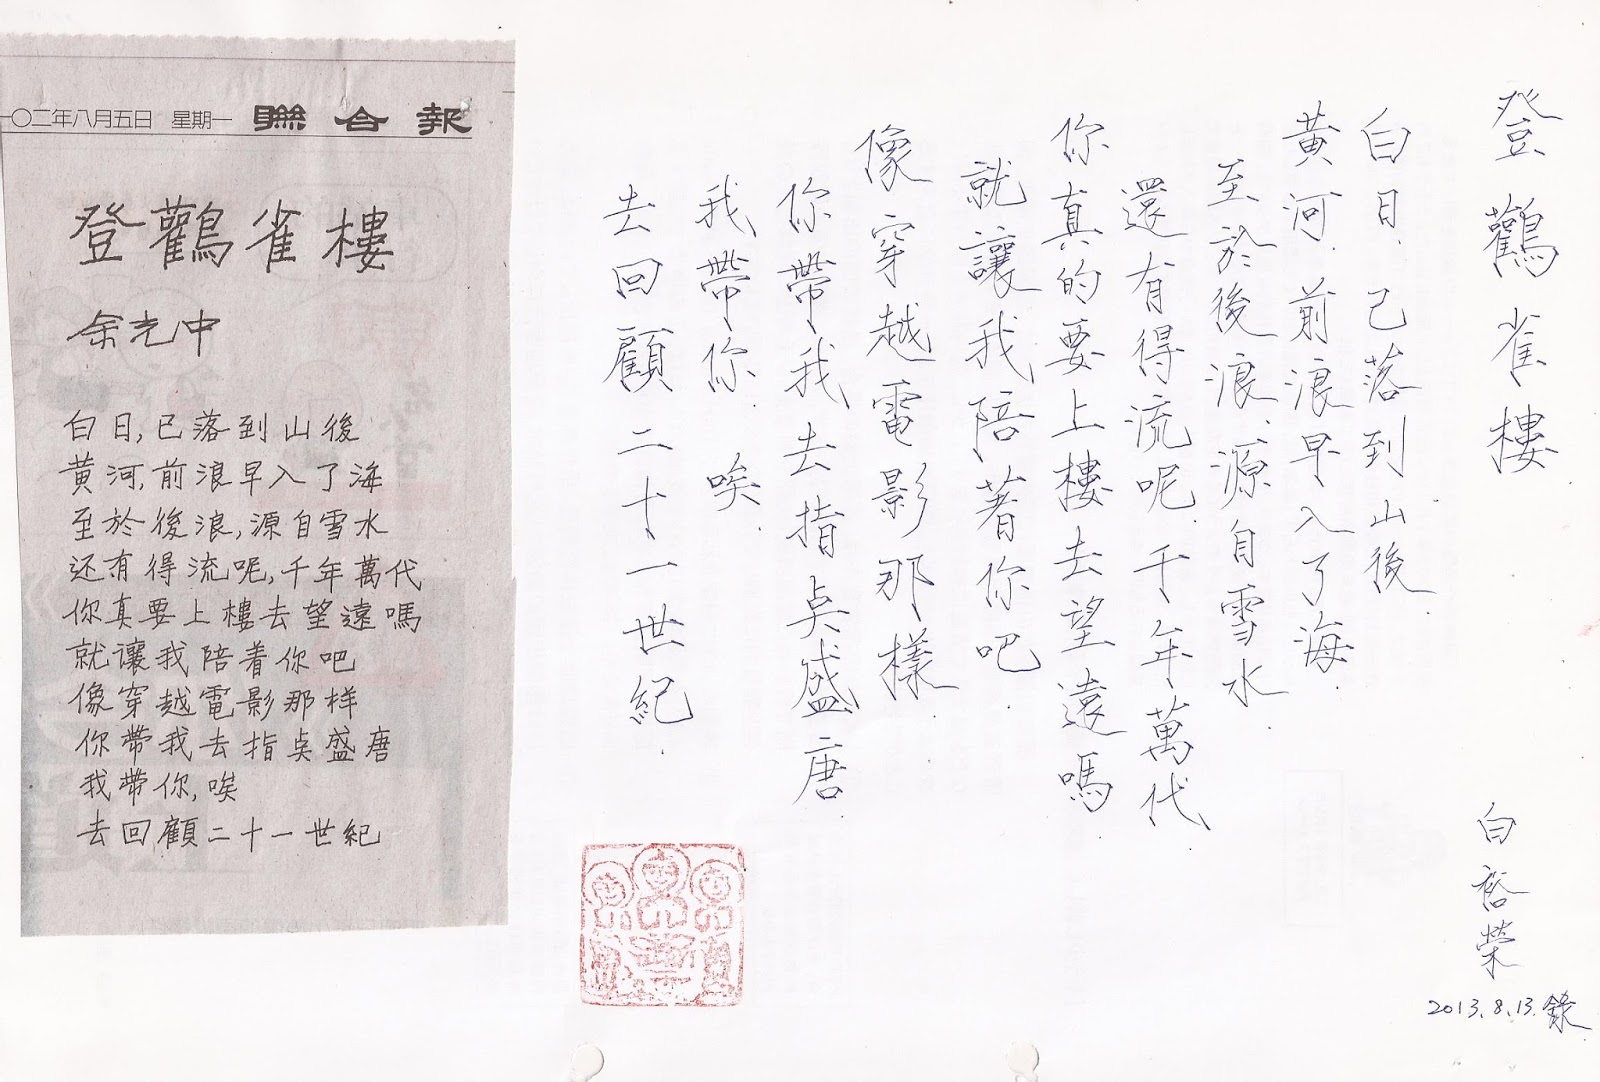 一〇二年八月五日 星期一 聯合報
登鸛雀樓
余光中
白日,已落到山後
黃河,前浪早入了海
至於後浪,源自雪水
还有得流呢,千年萬代
你真要上樓去望遠嗎
就讓我陪着你吧
像穿越電影那样
你帶我去指奌盛唐
我帶你,唉
去回顧二十一世紀
登鸛雀樓
白日.己落到山後.
黃河.前浪早入了海.
至於後浪.源自雪水.
還有得流呢.千年萬代.
你真的要上樓去望遠嗎.
就讓我陪著你吧.
像穿越電影那樣.
你帶我去指奌盛唐.
我帶你 唉.
去回顧二十一世紀.
白裕榮
2013.8.13.錄